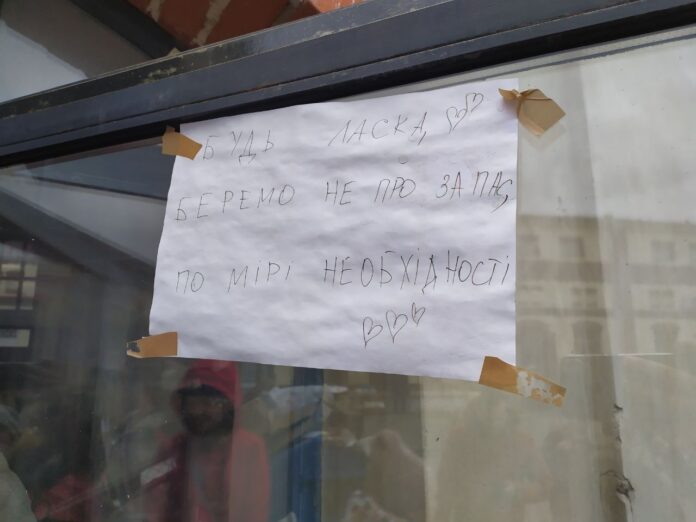 БУДЬ ЛАСКА,
БЕРЕМО НЕ ПРО ЗАПАС,
ПО МІРІ НЕОБХІДНОСТІ